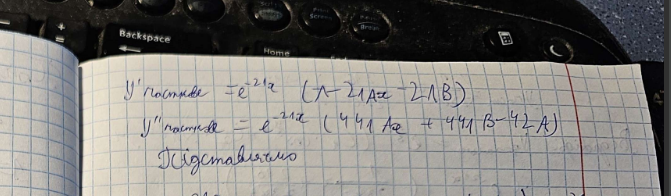 Backspace
Home
y' часткове = e^-21x (A - 21Ax - 21B)
y'' часткове = e^-21x (441 Ax + 441 B - 42A)
Підставляємо